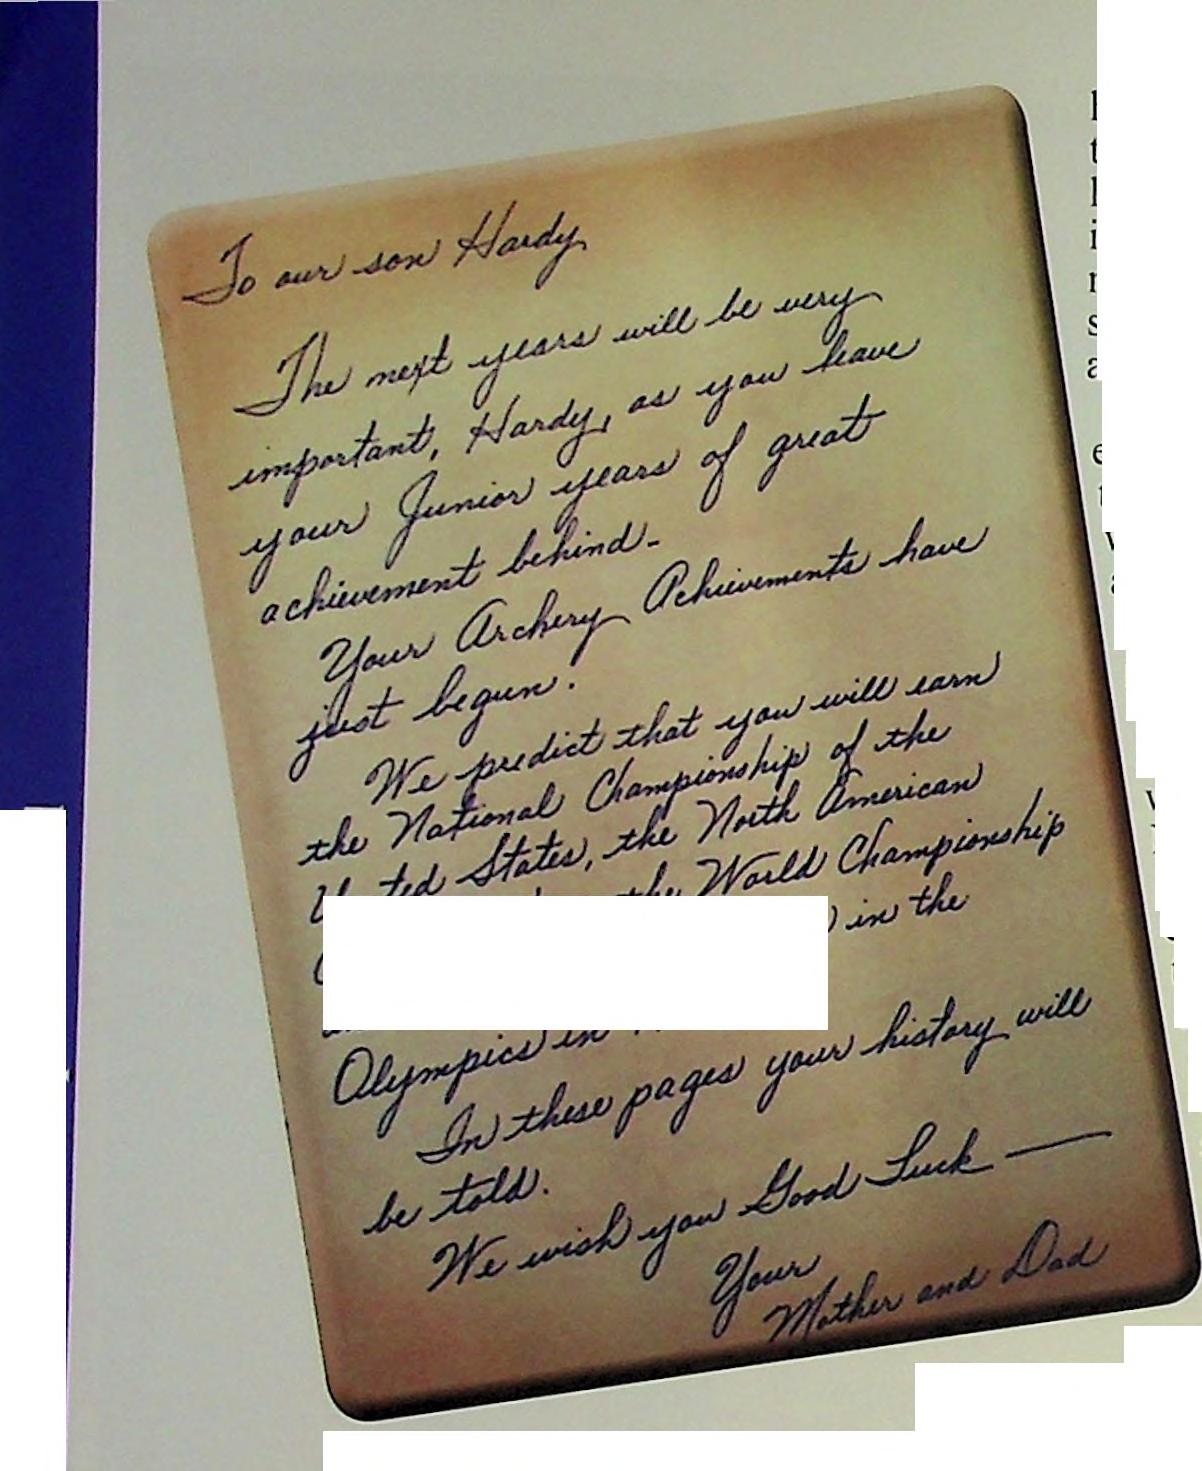 To our son Hardy
The next years will be very
important, Hardy, as you leave
your Junior years of great
achievement behind-
Your Archery Achievements have
just begun.
We predict that you will earn
the National Championship of the
United States, the North American
the World Championship
in the
Olympics in
In these pages your history will
be told.
We wish you Good Luck —
Your
Mother and Dad